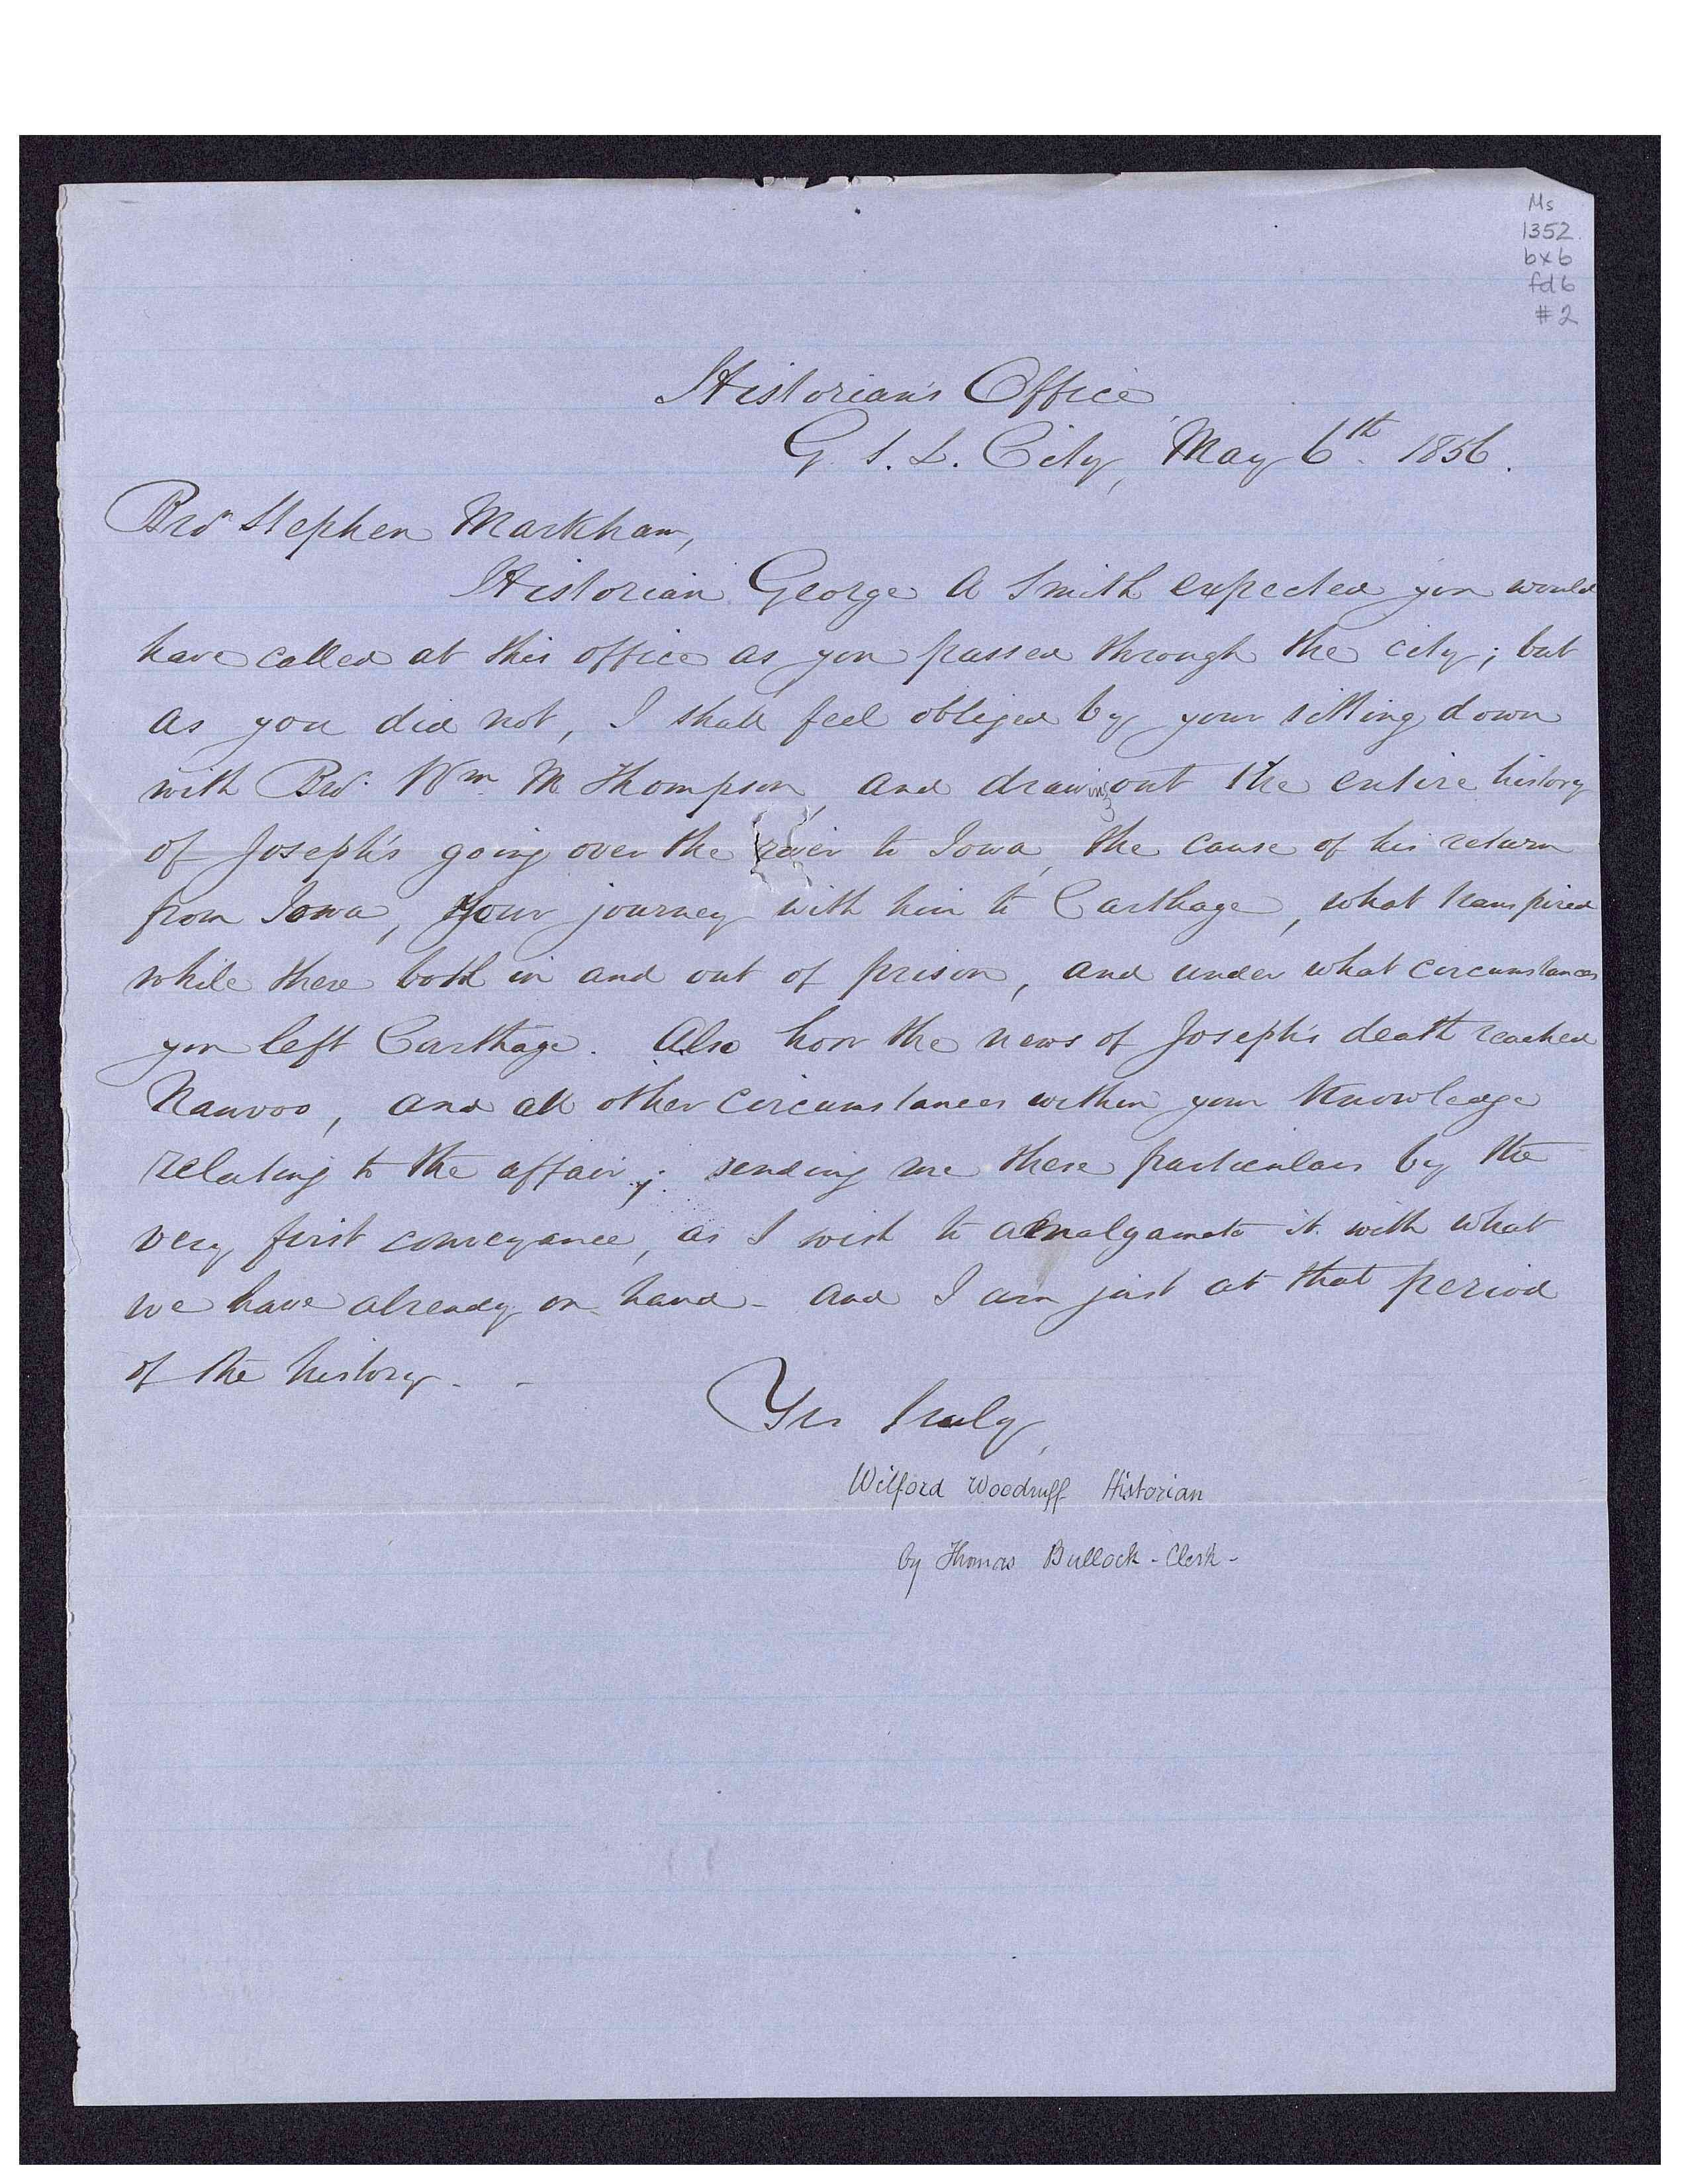 Ms
1352
bx6
fd6
#2
Historian's Office
G. S. L. City, May 6th. 1856.
Bro Stephen Markham,
Historian George A Smith expected you would
have called at this office as you passed through the city; but
as you did not, I shall feel obliged by your sitting down
with Bro. Wm. M Thompson, and drawing out the entire history
of Joseph's going over the river to Iowa, the cause of his return
from Iowa, Your journey with him to Carthage, what transpired
while there both in and out of prison, and under what circumstances
you left Carthage. Also how the news of Joseph's death reached
Nauvoo, and all other circumstances within your knowledge
relating to the affair; sending me these particulars by the
very first conveyance, as I wish to amalgamate it with what
we have already on hand - and I am just at that period
of the history. -
Yrs truly,
Wilford Woodruff Historian
by Thomas Bullock - Clerk -